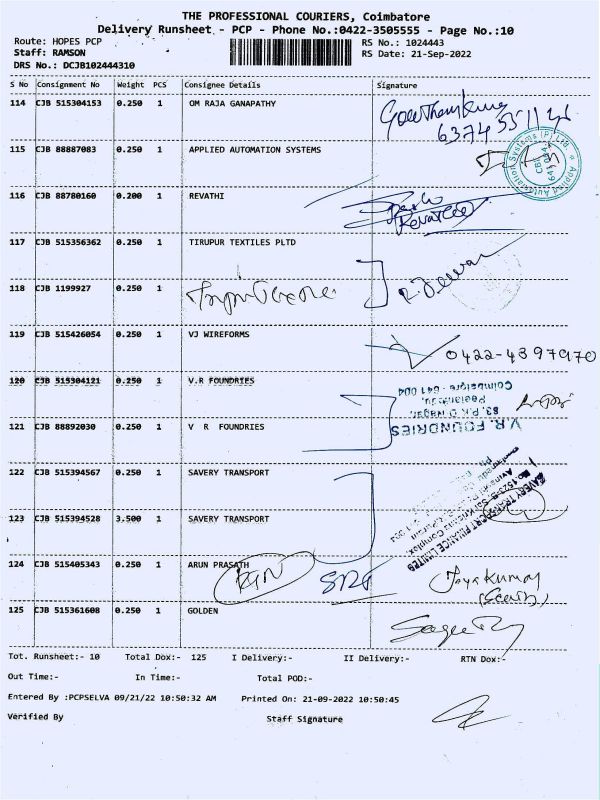 THE PROFESSIONAL COURIERS, Coimbatore
Delivery Runsheet - PCP - Phone No.:0422-3505555 - Page No.:10
Route: HOPES PCP RS No.: 1024443
Staff: RAMSON RS Date: 21-Sep-2022
DRS No.: DCJB102444310
S No Consignment No Weight PCS Consignee Details Signature
114 CJB 515304153 0.250 1 OM RAJA GANAPATHY
115 CJB 88887083 0.250 1 APPLIED AUTOMATION SYSTEMS
116 CJB 88780160 0.200 1 REVATHI
117 CJB 515356362 0.250 1 TIRUPUR TEXTILES PLTD
118 CJB 1199927 0.250 1
119 CJB 515426054 0.250 1 VJ WIREFORMS 0422-4397970
120 CJB 515304121 0.250 1 V.R FOUNDRIES
121 CJB 88892030 0.250 1 V R FOUNDRIES
V.R. FOUNDRIES
Coimbatore - 641 004
122 CJB 515394567 0.250 1 SAVERY TRANSPORT
123 CJB 515394528 3.500 1 SAVERY TRANSPORT
124 CJB 515405343 0.250 1 ARUN PRASATH RTN Jayakumar
125 CJB 515361608 0.250 1 GOLDEN
Tot. Runsheet:- 10 Total Dox:- 125 I Delivery:- II Delivery:- RTN Dox:-
Out Time:- In Time:- Total POD:-
Entered By :PCPSELVA 09/21/22 10:50:32 AM Printed On: 21-09-2022 10:50:45
Verified By Staff Signature